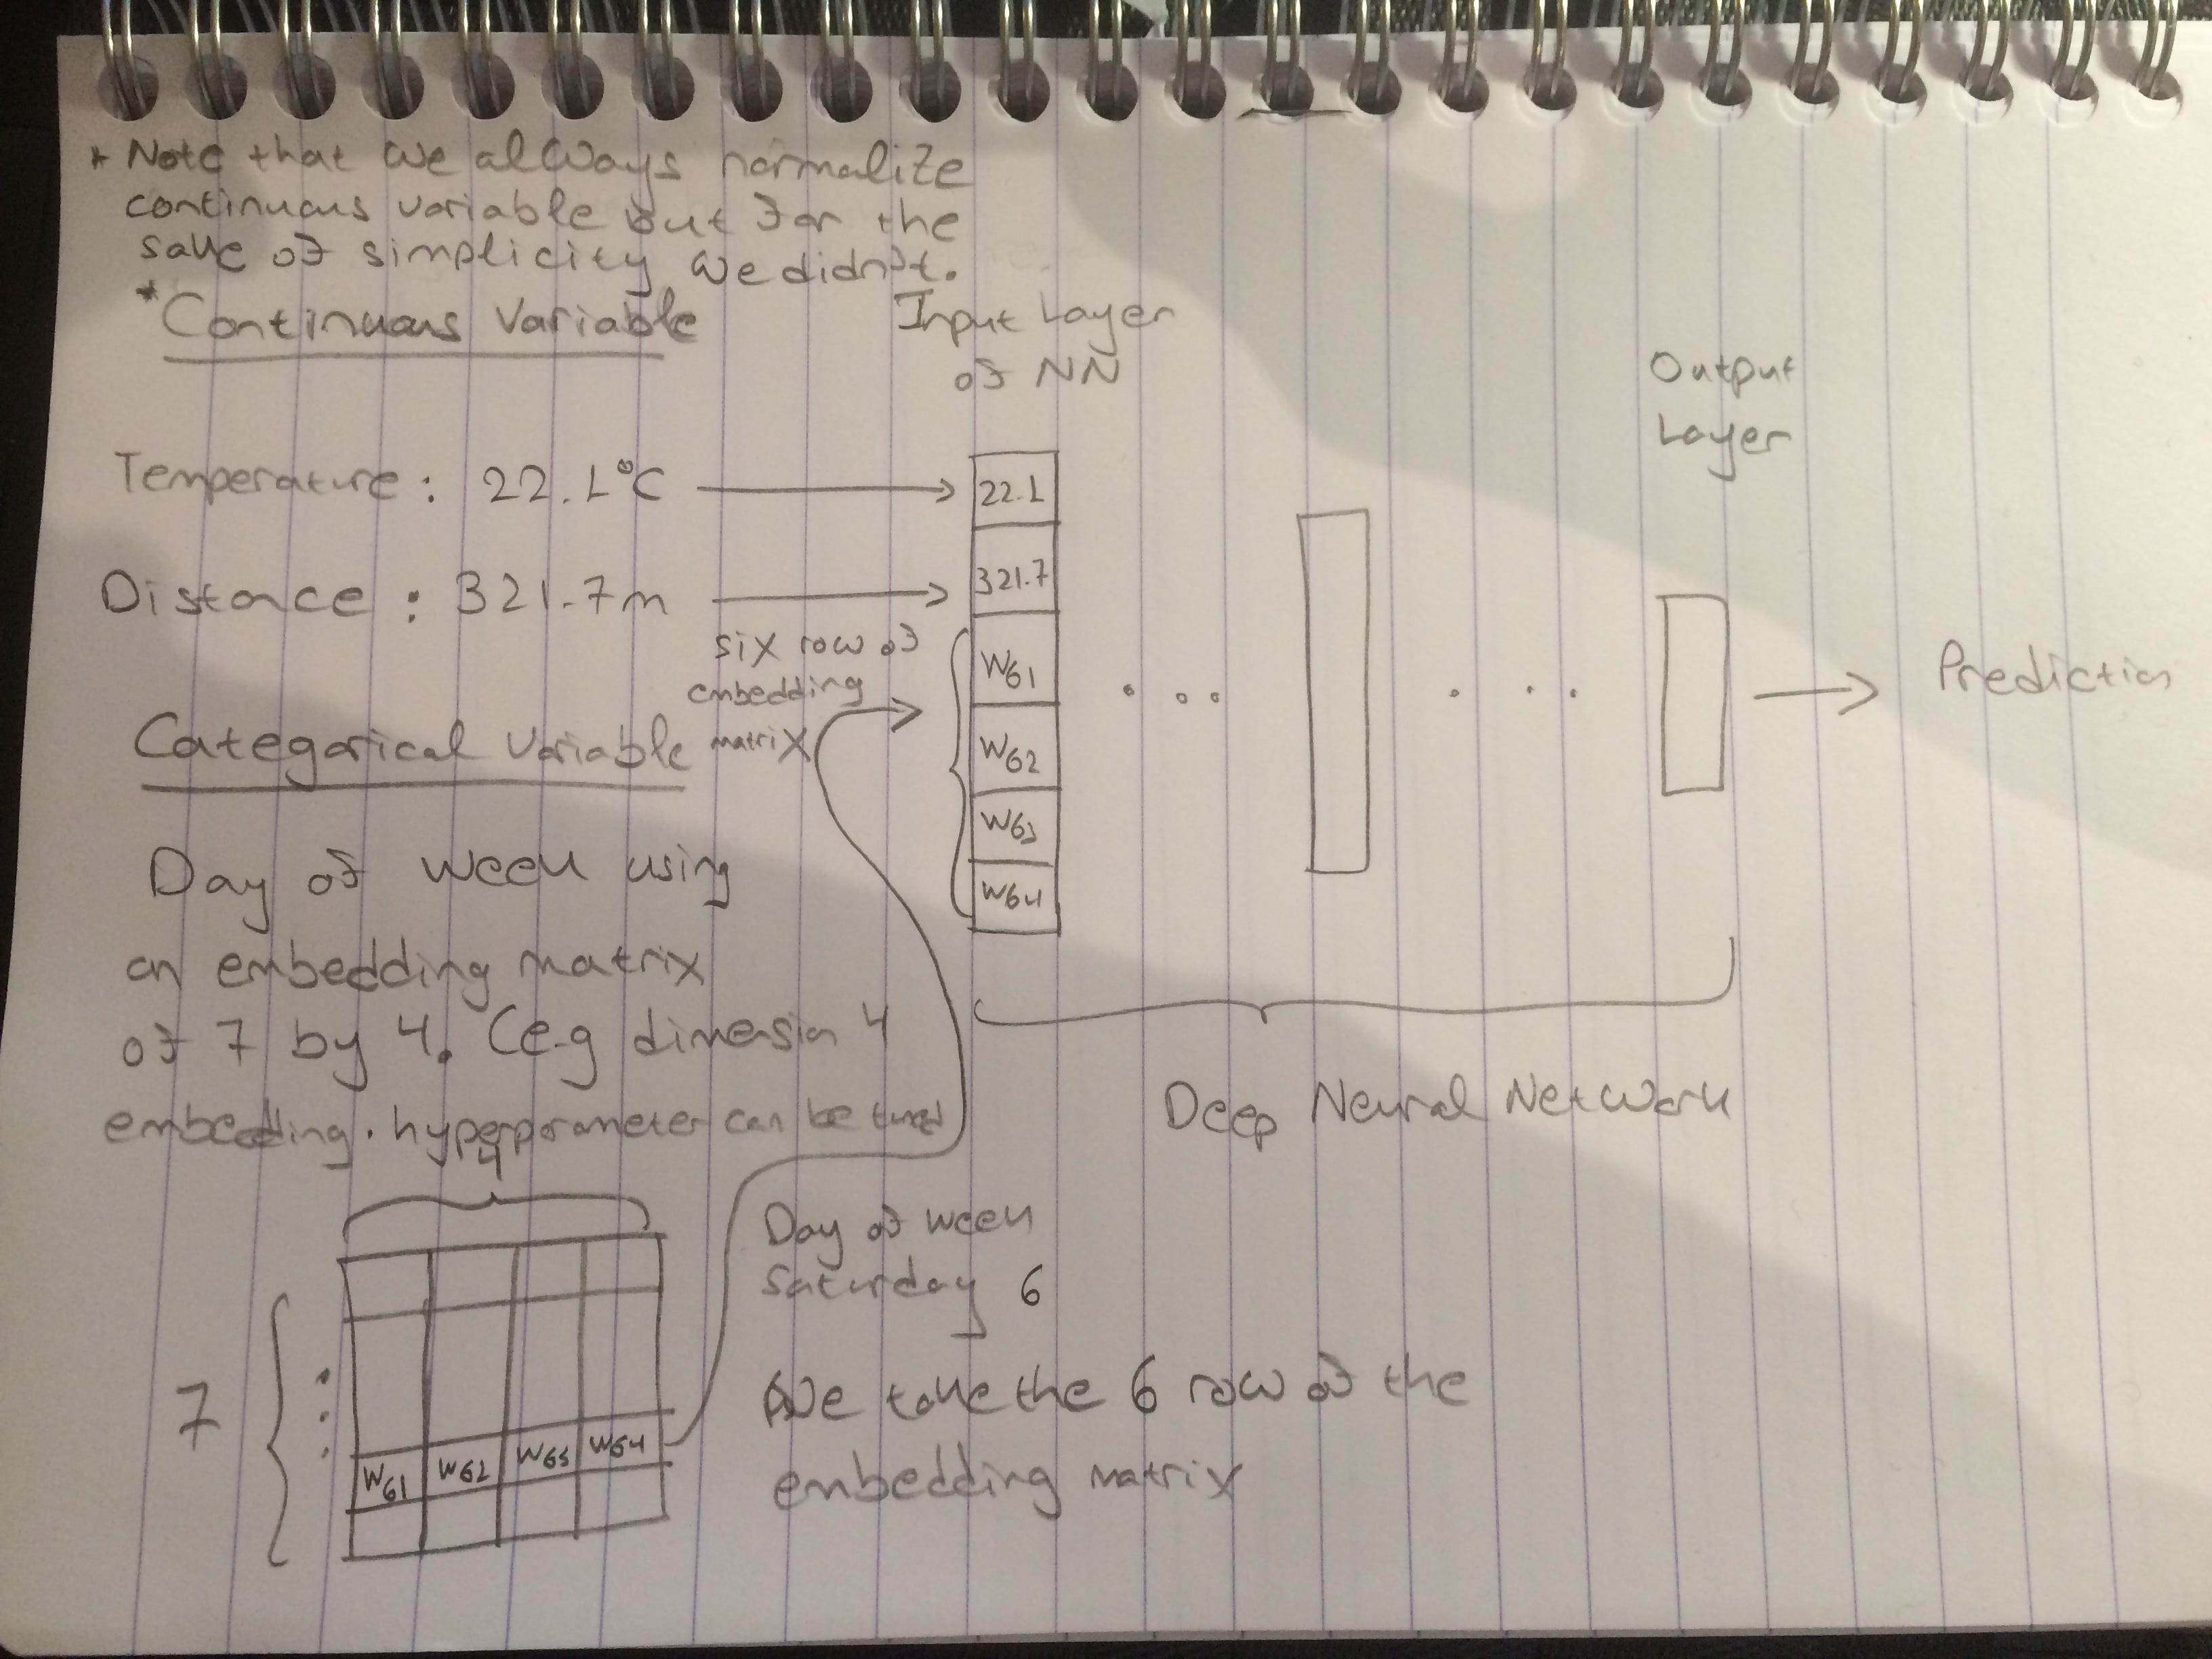 * Note that we always normalize
continuous variable but for the
sake of simplicity we didn't.
*Continuous Variable
Input Layer
of NN
Output
Layer
Temperature: 22.1°C
22.1
Distance: 321.7m
321.7
six row of
embedding
matrix
W61
W62
W63
W64
. . .
. . .
Prediction
Categorical Variable
Day of week using
an embedding matrix
of 7 by 4. (e.g dimension 4
embedding. hyperparameter can be tuned
Deep Neural Network
4
7
W61 W62 W63 W64
Day of week
Saturday 6
We take the 6 row of the
embedding matrix